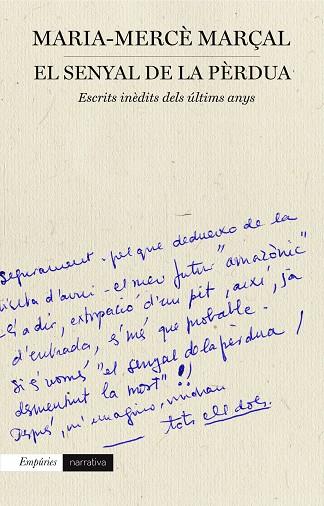 MARIA-MERCÈ MARÇAL
EL SENYAL DE LA PÈRDUA
Escrits inèdits dels últims anys
Segurament - pel que dedueixo de la
visita d'avui - el meu futur "amazònic"
- és a dir, extirpació d'un pit, així, ja
d'entrada, és més que probable.
Si és només "el senyal de la pèrdua /
desmentint la mort" !!
Després, m'imagino, vindran
tots els dols.
Empúries narrativa